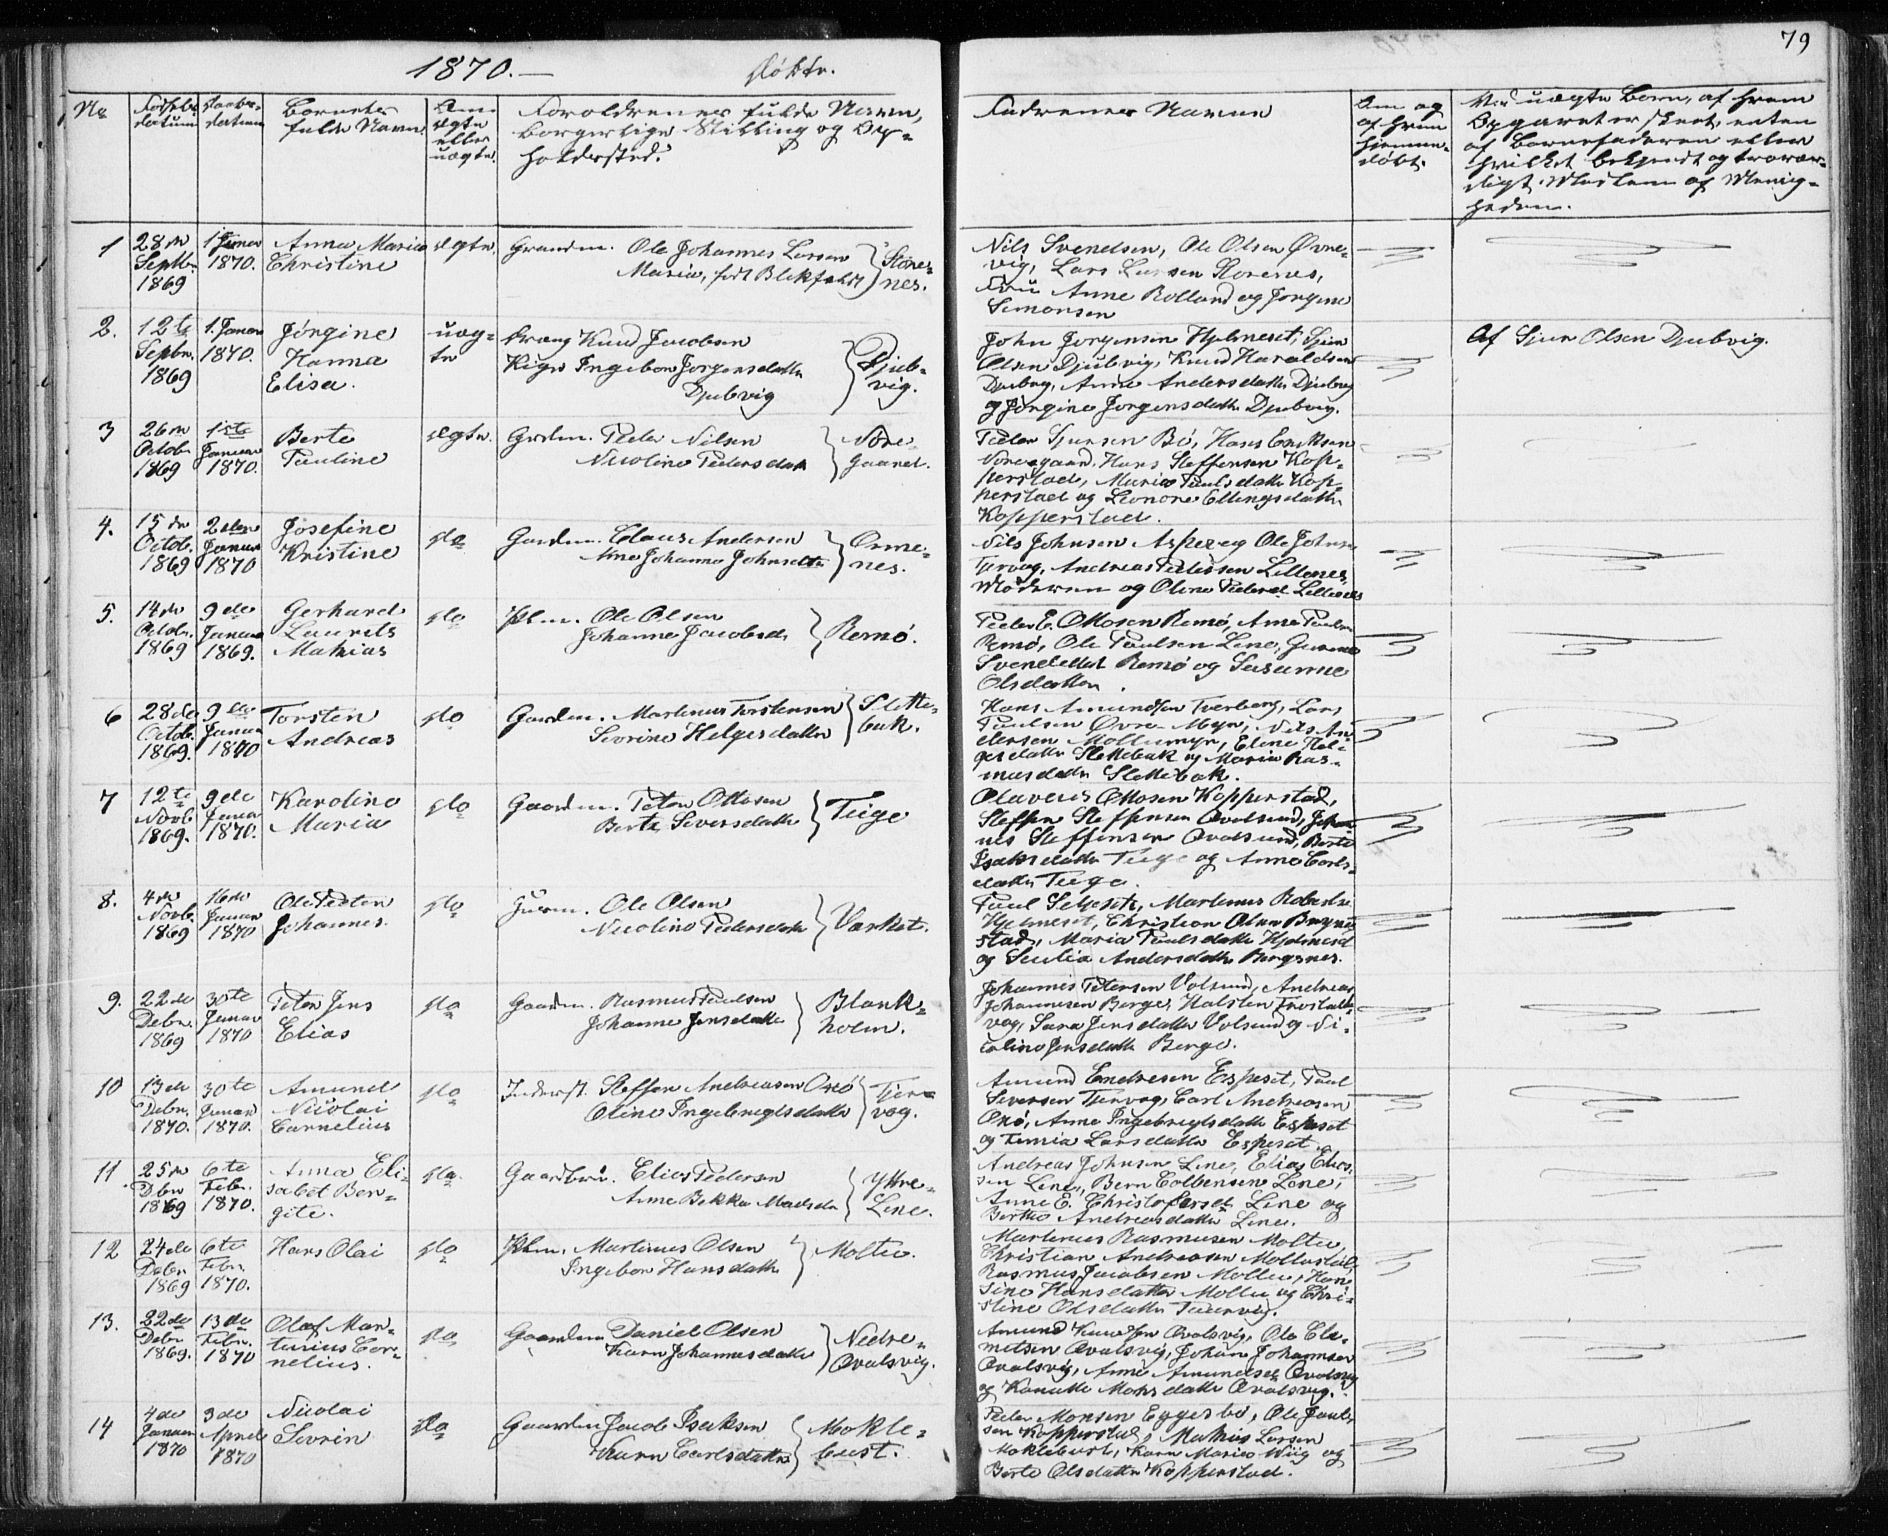 79
1870.— Døbte.
No
Fødsels-
datum
Daabs-
datum
Barnets
fulde Navn.
Om
ægte
eller
uægte.
Forældrenes fulde Navn,
borgerlige Stilling og Op-
holdssted.
Faddernes Navne
Om og
af hvem
hjemme-
døbt.
Ved uægte Børn, af hvem
Opgavet er skeet, enten
af Barnefaderen eller
hvilket bekjendt og trovær-
digt Medlem af Menig-
heden.
1
28de
Septb.
1869
1 Januar
1870.
Anna Maria
Christine
ægte.
Gaardm. Ole Johannes Larsen
Maria, født Blikfeldt
Støre-
nes.
Nils Svendsen, Ole Olsen Øvre-
vig, Lars Larsen Storenes,
Fru Anne Rolland og Jørgine
Simonsen
2.
12te
Septbr.
1869
1. Januar
1870.
Jørgine
Hanna
Elisa.
uæg-
te
Dreng Knud Jacobsen
Pige Ingebor Jørgensdatter
Djubvig
Djub-
vig.
John Jørgensen Hjelmeset, Sjur
Olsen Djubvig, Knud Haraldsen
Djubvig, Anne Andersdatter Djubvig
og Jørgine Jørgensdatter Djubvig.
Af Sjur Olsen Djubvig.
3
26de
Octob.
1869
1ste
Januar
1870.
Berte
Pauline
ægte.
Grdm. Peder Nilsen
Nicoline Pedersdatter
Nore-
gaard.
Peder Sjursen Bø, Hans Eriksen
Noregaard, Hans Steffensen Kop-
perstad, Maria Paulsdatter Kop-
perstad og Leonore Ellingsdatter
Kopperstad.
4.
15de
Octob.
1869
2den
Januar
1870
Josefine
Kristine
do
Gaardm. Claus Andersen
Ane Johanna Johnsdtr
Orme-
nes.
Nils Johnsen Aspevig Ole Johnsen
Tjervog, Andreas Pedersen Lillenes,
Moderen og Oline Pedersd. Lillenes
5.
14de
Octob.
1869
9de
Januar
1869.
Gerhard
Laurits
Mathias
do
Plm. Ole Olsen
Johanne Jacobsd.
Remø.
Peder E. Ottosen Remø, Arne Paulsen
Remø, Ole Paulsen Line,
Remø og Susanne
Olsdatter.
6
28de
Octob.
1869.
9de
Januar
1870
Torsten
Andreas
do
Gaardm. Martinus Torstensen
Sevrine Helgesdatter
Slette-
bak.
Hans Amundsen Tverberg, Lars
Paulsen Øvre Myr, Nils An-
dersen Moltumyr, Eline Hel-
gesdatter Slettebak og Maria Ras-
musdatter Slettebak.
7
12te
Novb.
1869.
9de
Januar
1870.
Karoline
Maria
do
Gaardm. Peter Ottosen
Berte Siversdatter
Teige
Olaverus Ottosen Kopperstad,
Steffen Steffensen Qvalsund, Johan-
nes Steffensen Qvalsund, Berte
Isaksdatter Teige og Anne Carls-
datter Teige.
8.
4de
Novb.
1869
16de
Januar
1870
Ole Peder
Johannes.
do
Huusm. Ole Olsen
Nicoline Pedersdatter
Værket.
Paul Seljeset, Martinus Robertsen
Hjelmeset, Christian Olsen Bergnes
stad, Maria Paulsdatter Hjelmeset
og Seselia Andersdatter Bergsnes.
9.
22de
Debr.
1869
30te
Januar
1870
Peter Jens
Elias
do
Gaardm. Rasmus Paulsen
Johanne Jensdatter
Blank-
holm.
Johannes Petersen Volsund, Andreas
Johannesen Berge, Halsten Frostad
vog, Sara Jensdatter Volsund og Ni-
coline Jensdatter Berge.
10
13de
Debr.
1870.
30te
Januar
1870.
Amund
Nicolai
Cornelius
do
Inderst. Steffen Andreasen Oxø
Oline Ingebregtsdatter
Tjer-
vog.
Amund Endresen Espeset, Paul
Seversen Tjervog, Carl Andreasen
Oxø, Anne Ingebregtsdatter Espeset
og Larsdatter Espeset.
11.
25de
Dbr
1869
6te
Febr.
1870.
Anna Eli-
sabet Ber-
gite.
do.
Gaardbr. Elias Pedersen
Anne Bekka Madsd.
Yttre-
Line.
Andreas Johnsen Line, Elias Elias-
sen Line, Bern Colbensen Line,
Anne E. Christofersd. Line og
Berthe Andreasdatter Line.
12
24de
Debr
1869
6te
Febr.
1870.
Hans Olai
do
Plm. Martinus Olsen
Ingebor Hansdatter
Moltu.
Martinus Rasmusen Moltu,
Christian Andreasen Moltustad,
Rasmus Jacobsen Moltu, Han-
sine Hansdatter Moltu og Chri-
stine Olsdatter Taurvig.
13.
22de
Debr
1869.
13de
Febr.
1870
Olaf Mar-
tinius Cor-
nelius.
do
Gaardm. Daniel Olsen
Karn Johannesdatter
Nedre-
Qvalsvig.
Amund Knudsen Qvalsvig, Ole Cle-
metsen Qvalsvig, Johan Johannesen
Qvalsvig, Anne Amundsd. Qvalsvig
og Kanutte Mohsdatter Qvalsvig.
14
4de
Januar
1870
3de
April
1870
Nicolai
Sevrin
do
Gaardm Jacob Isaksen
Karn Carlsdatter
Mokle-
bust.
Peder Monsen Eggesbø, Ole Paul-
sen Kopperstad, Mathias Larsen
Moklebust, Karn Maria Wiig og
Berte Olsdatter Kopperstad.